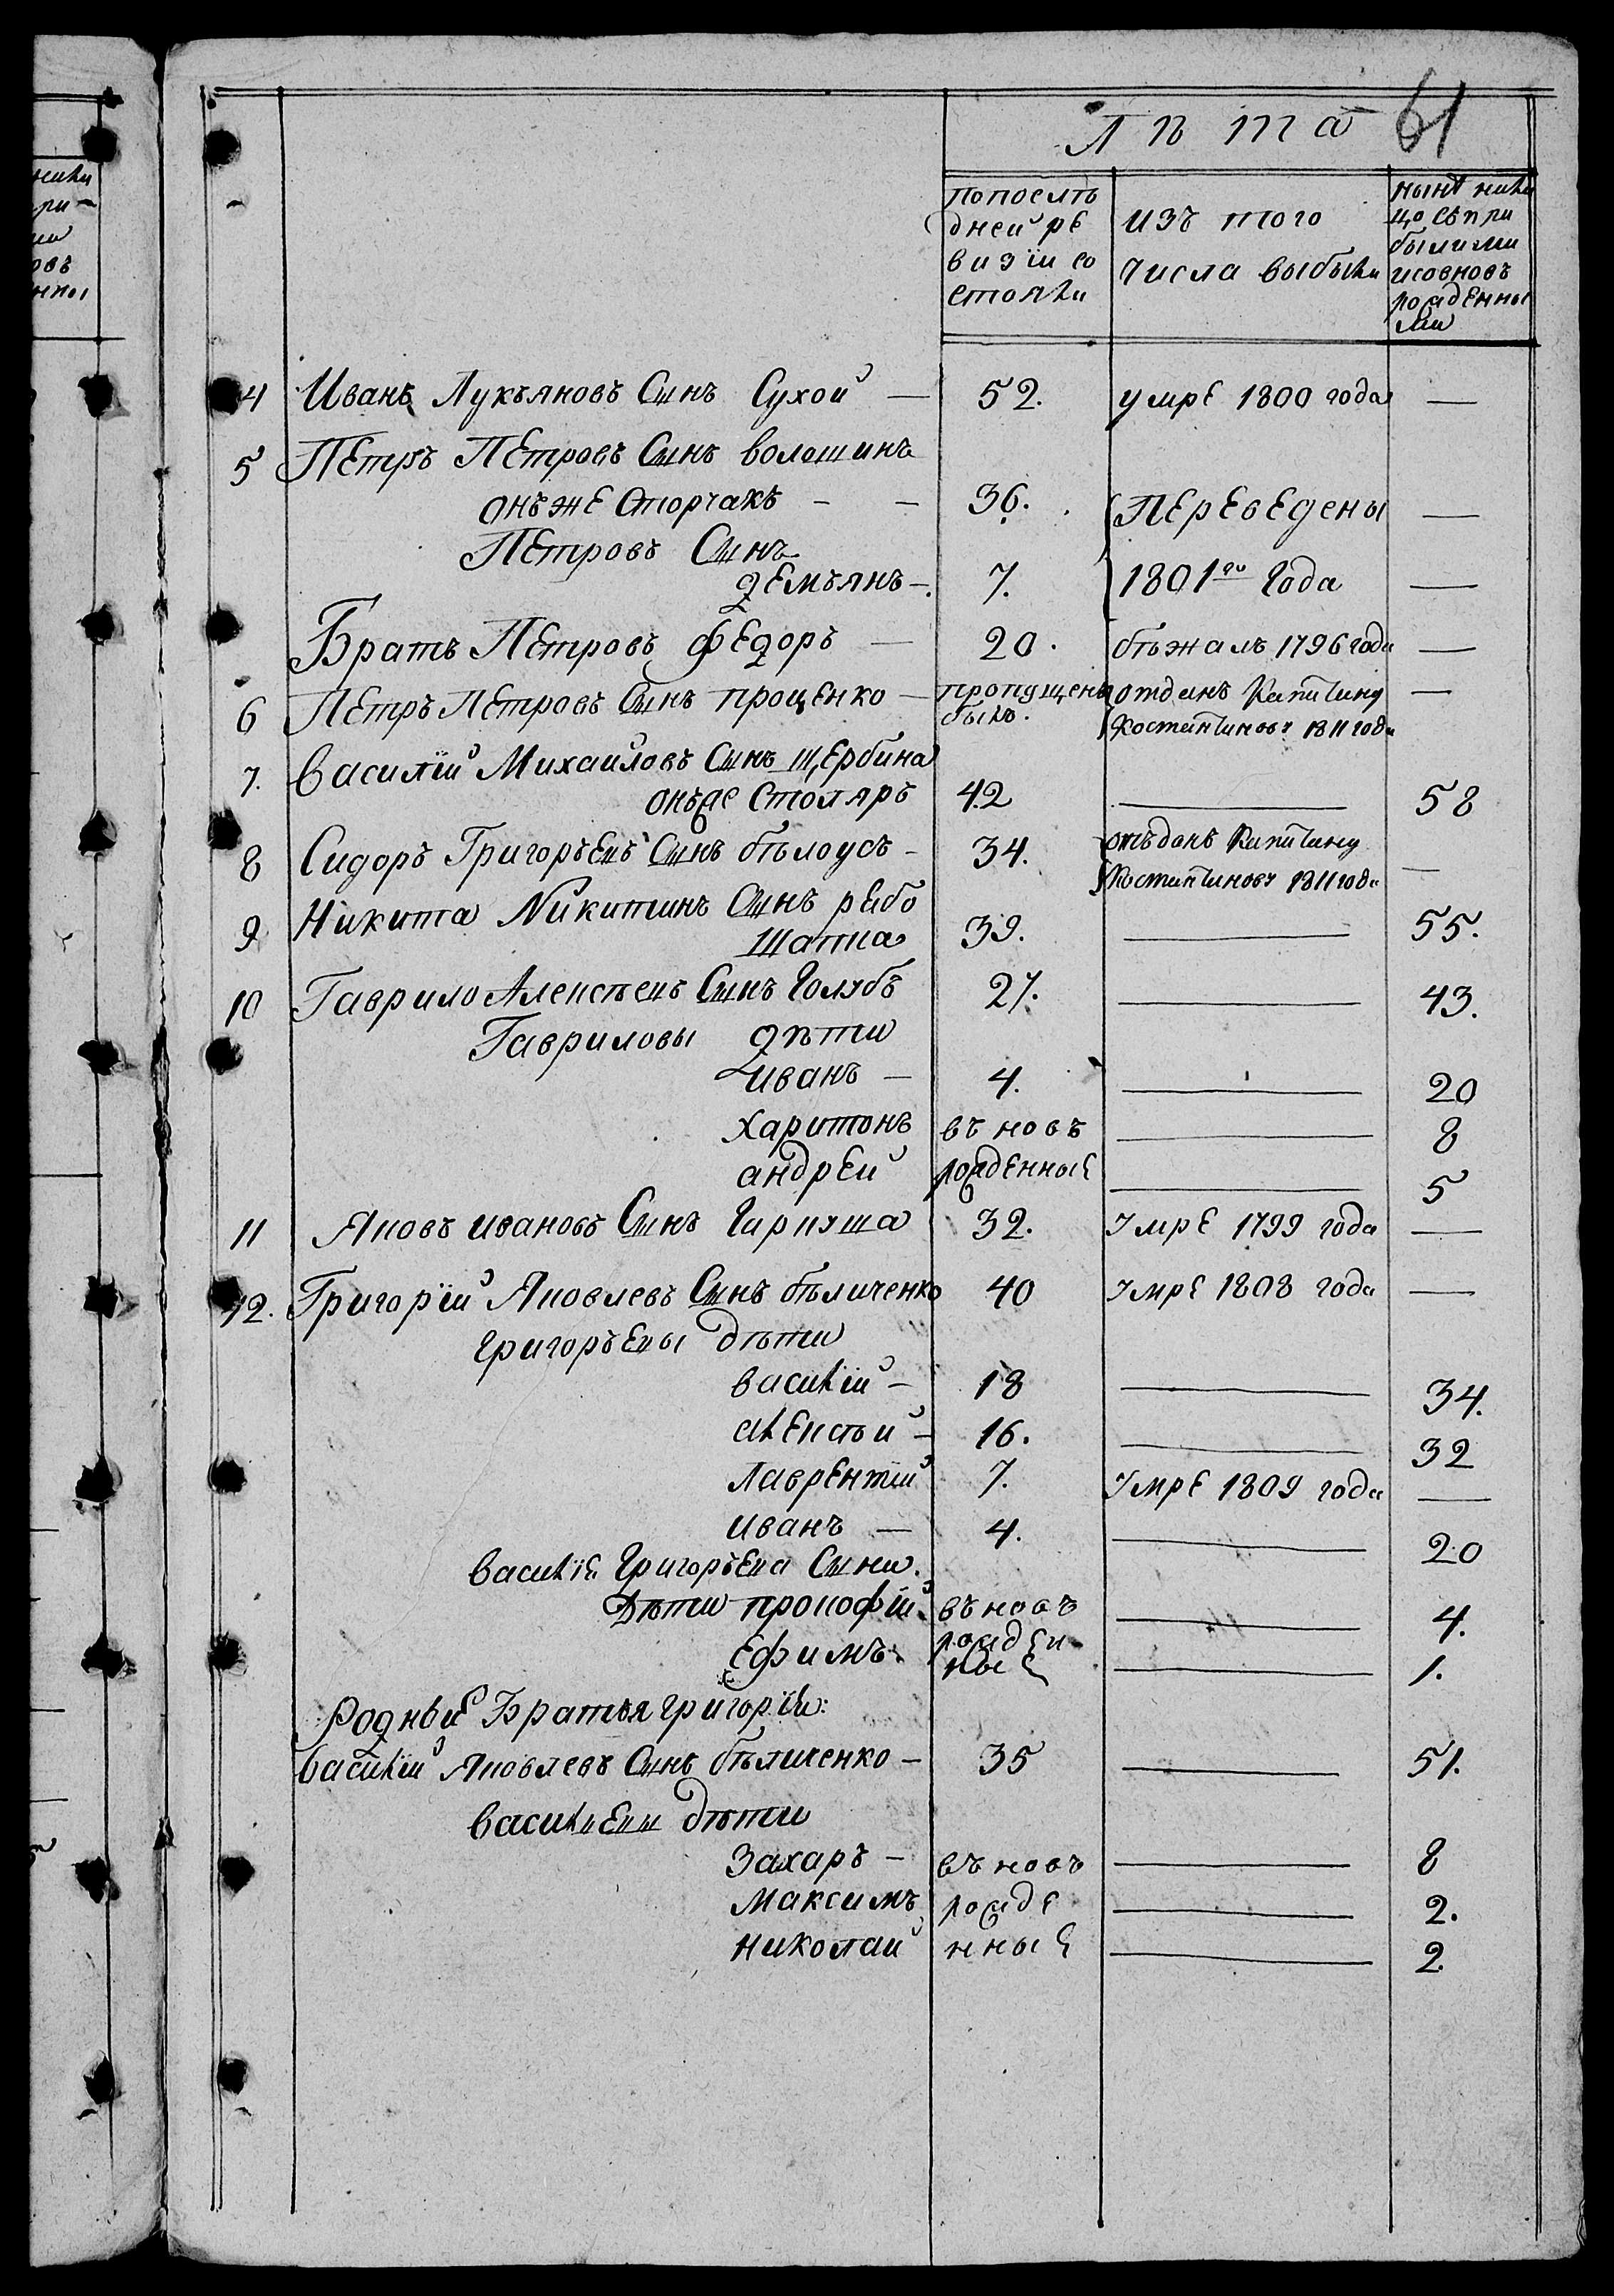 Лѣта 61
попослѣ
дней ре
визiи со
стояли
изъ того
числа выбыли
нынѣ нали
цо съпри
былыми
исовновъ
рожденны
ми
4 Иванъ Лукъяновъ Сынъ Сухой — 52. умре 1800 года —
5 Петръ Петровъ Сынъ волошинъ
онъже Сторчакъ — — 36. Переведены —
Петровъ Сынъ
демъянъ — 7. 1801го года —
Братъ Петровъ федоръ — 20. бѣжалъ 1796 года —
6 Петръ Петровъ Сынъ проценко — пропущенъ отданъ —
былъ. 1811 года
7. василiй Михайловъ Сынъ щербина
онъже Столяръ 42 — 58
8 Сидоръ Григорьевъ Сынъ бѣлоусъ — 34. отъданъ —
1811 года
9 Никита Никитинъ Сынъ рябо
шапка 39. — 55.
10 Гаврило Алексѣевъ Сынъ Голубъ 27. — 43.
Гавриловы дѣти
иванъ — 4. — 20
харитонъ въ новъ — 8
андрей рожденные — 5
11 Яковъ ивановъ Сынъ Гаркуша 32. умре 1799 года —
12. Григорiй Яковлевъ Сынъ бѣличенко 40 умре 1808 года —
григорьевы дѣти
василiй — 18 — 34.
алексѣй — 16. — 32
лаврентiй 7. умре 1809 года —
иванъ — 4. — 20
василiя Григорьева Сына
Дѣти прокофiй въ новъ — 4.
ефимъ рожден
ные — 1.
Родные Братья григорiя:
василiй Яковлевъ Сынъ бѣличенко — 35 — 51.
васильевы дѣти
Захаръ — въ новъ — 8
Максимъ рожде — 2.
николай нные — 2.